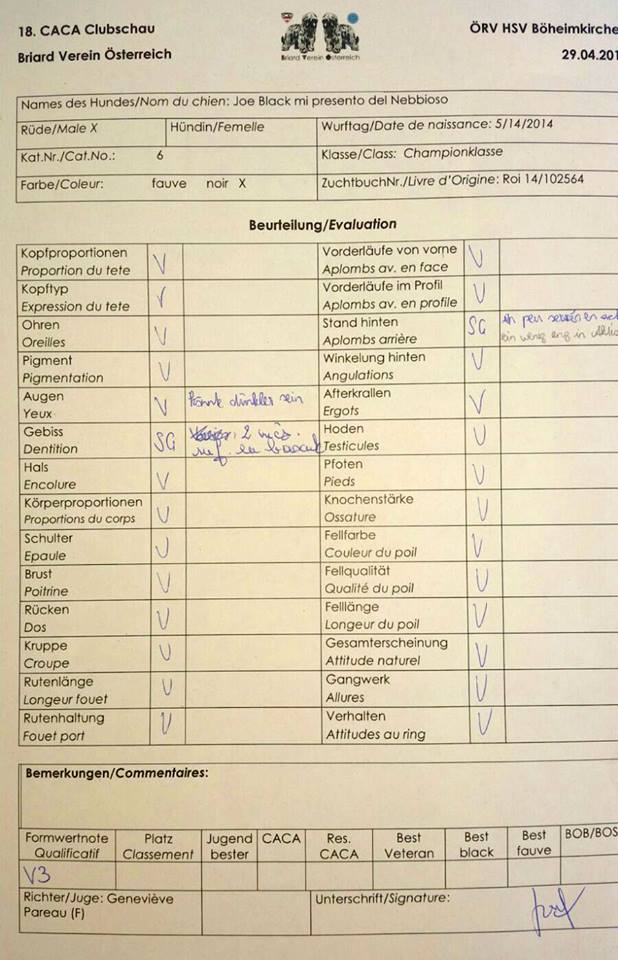 18. CACA Clubschau
ÖRV HSV Böheimkirche
Briard Verein Österreich
Briard Verein Österreich
29.04.201
Names des Hundes/Nom du chien: Joe Black mi presento del Nebbioso
Rüde/Male X Hündin/Femelle Wurftag/Date de naissance: 5/14/2014
Kat.Nr./Cat.No.: 6 Klasse/Class: Championklasse
Farbe/Coleur: fauve noir X ZuchtbuchNr./Livre d'Origine: Roi 14/102564
Beurteilung/Evaluation
Kopfproportionen
Proportion du tete V
Vorderläufe von vorne
Aplombs av. en face V
Kopftyp
Expression du tete V
Vorderläufe im Profil
Aplombs av. en profile V
Ohren
Oreilles V
Stand hinten
Aplombs arrière SG
un peu serré en
ein wenig eng in
Pigment
Pigmentation V
Winkelung hinten
Angulations V
Augen
Yeux V könnte dunkler sein
Afterkrallen
Ergots V
Gebiss
Dentition SG 2
Hoden
Testicules V
Hals
Encolure V
Pfoten
Pieds V
Körperproportionen
Proportions du corps V
Knochenstärke
Ossature V
Schulter
Epaule V
Fellfarbe
Couleur du poil V
Brust
Poitrine V
Fellqualität
Qualité du poil V
Rücken
Dos V
Felllänge
Longeur du poil V
Kruppe
Croupe V
Gesamterscheinung
Attitude naturel V
Rutenlänge
Longeur fouet V
Gangwerk
Allures V
Rutenhaltung
Fouet port V
Verhalten
Attitudes au ring V
Bemerkungen/Commentaires:
Formwertnote Platz Jugend CACA Res. Best Best Best BOB/BOS
Qualificatif Classement bester CACA Veteran black fauve
V3
Richter/Juge: Geneviève Unterschrift/Signature:
Pareau (F)